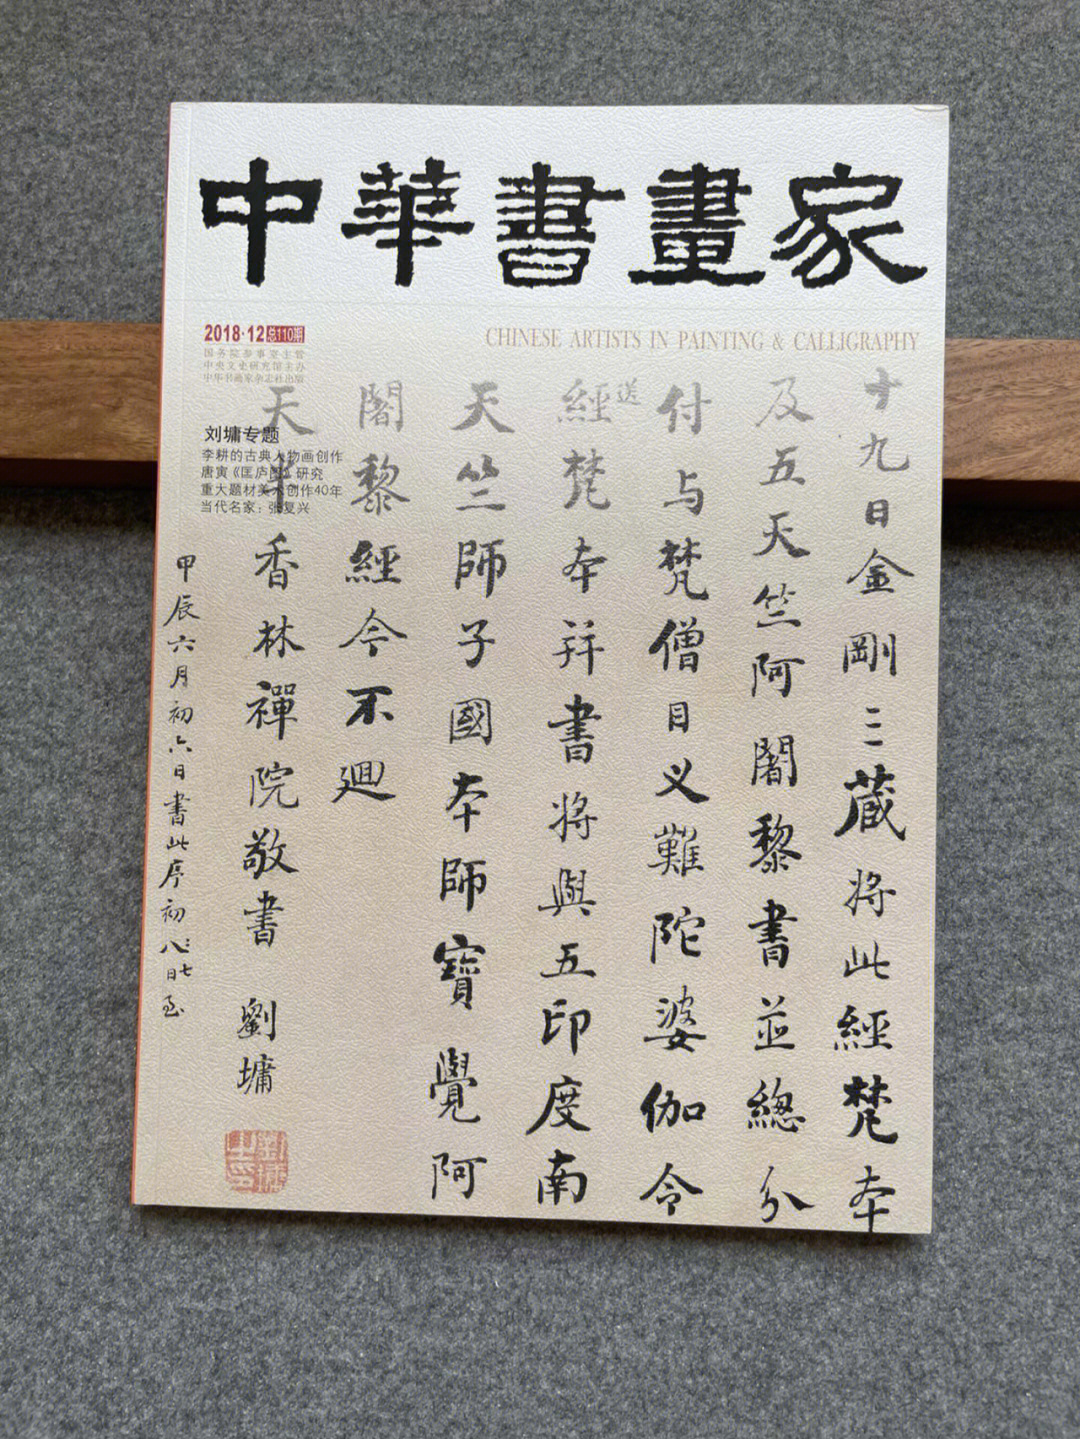 中華書畫家
2018·12 总110期
CHINESE ARTISTS IN PAINTING & CALLIGRAPHY
国务院参事室主管
中央文史研究馆主办
中华书画家杂志社出版
刘墉专题
李耕的古典人物画创作
唐寅《匡庐图》研究
重大题材美术创作40年
当代名家：张复兴
十九日金剛三藏將此經梵本
及五天竺阿闍黎書並總分
付与梵僧目义難陀婆伽令
送
經梵本并書將與五印度南
天竺師子國本師寶覺阿
闍黎經今不迴
天半香林禪院敬書 劉墉
甲辰六月初六日書此序初八日